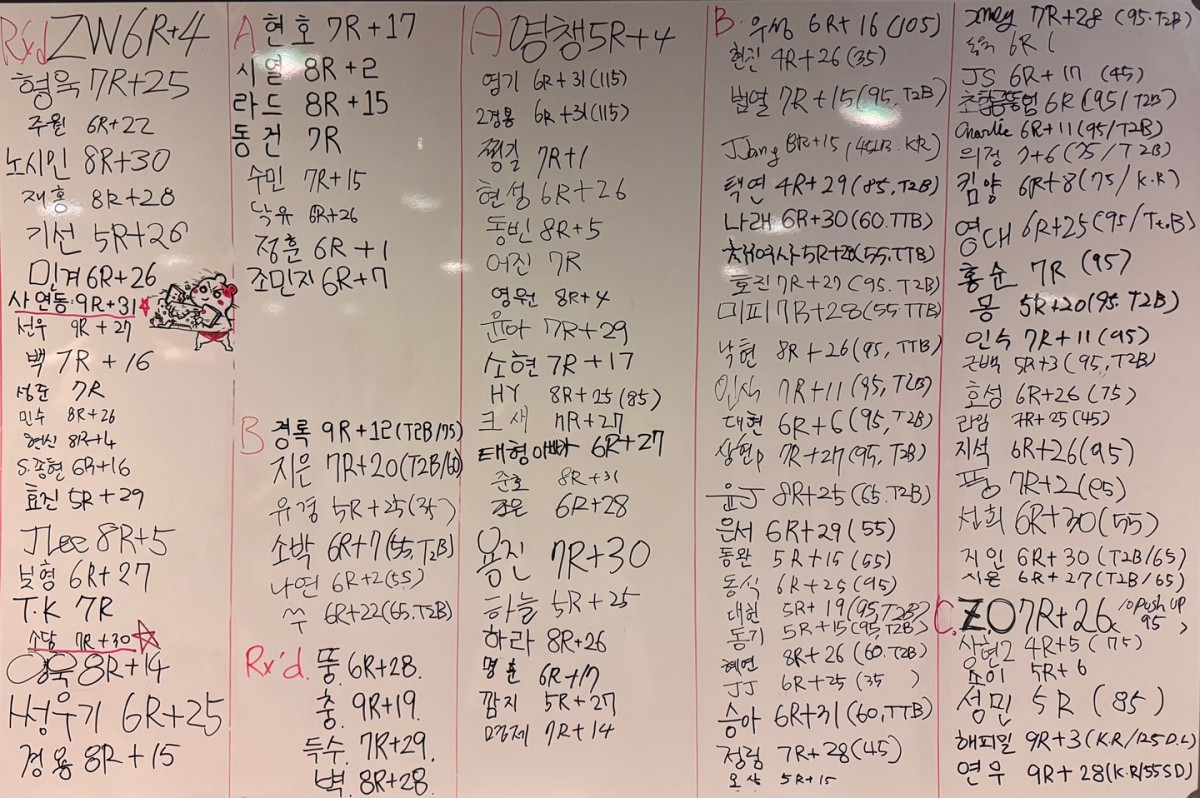 Rx'd ZW 6R+4
형욱 7R+25
주월 6R+22
노시민 8R+30
재홍 8R+28
기선 5R+26
민겨 6R+26
사연동 9R+31
선우 9R+27
백 7R+16
성준 7R
민수 8R+26
현신 8R+4
S.종현 6R+16
효진 5R+29
JLee 8R+5
보형 6R+27
T.K 7R
소담 7R+30
영욱 8R+14
써우기 6R+25
경용 8R+15
A 현호 7R+17
시열 8R+2
라드 8R+15
동건 7R
수민 7R+15
낙유 6R+26
정훈 6R+1
조민지 6R+7
B 경록 9R+12(T2B/75)
지은 7R+20(T2B/60)
유경 5R+25(35)
소박 6R+7(55.T2B)
나연 6R+2(55)
쑤 6R+22(65.T2B)
Rx'd. 뚱 6R+28.
충. 9R+19.
득수. 7R+29.
벽. 8R+28.
A 영쟁 5R+4
영기 6R+31(115)
2경용 6R+31(115)
찡길 7R+1
현성 6R+26
동빈 8R+5
어진 7R
영원 8R+4
윤아 7R+29
소현 7R+17
HY 8R+25(85)
크새 7R+27
태형아빠 6R+27
준호 8R+31
6R+28
용진 7R+30
하늘 5R+25
하라 8R+26
명훈 6R+17
깜지 5R+27
7R+14
B. 우성 6R+16(105)
현진 4R+26(35)
범열 7R+15(95.T2B)
JJang 8R+15
택연 4R+29(85.T2B)
나래 6R+30(60.TTB)
5R+28(55.TTB)
효진 7R+27(95.T2B)
미피 7R+28(55.TTB)
낙현 8R+26(95,TTB)
인식 7R+11(95,T2B)
대현 6R+6(95,T2B)
상현P 7R+27(95,T2B)
윤J 8R+25(65.T2B)
은서 6R+29(55)
동완 5R+15(55)
동식 6R+25(95)
대현 5R+19(95,T2B)
동기 5R+15(95,T2B)
혜연 8R+26(60.T2B)
JJ 6R+25(35)
승아 6R+31(60,TTB)
정림 7R+28(45)
5R+15
7R+28(95.T2B)
6R
JS 6R+17(45)
6R(95/T2B)
Charlie 6R+11(95/T2B)
의정 7+6(75/T2B)
킴양 6R+8(75/K.R)
영대 6R+25(95/T2B)
홍순 7R(95)
몽 5R+20(95.T2B)
인수 7R+11(95)
근백 5R+3(95,T2B)
효성 6R+26(75)
라임 7R+25(45)
지석 6R+26(95)
퐁 7R+2(95)
선희 6R+30(55)
지인 6R+30(T2B/65)
시윤 6R+27(T2B/65)
C. ZO 7R+26 (10push up 95)
상현2 4R+5(75)
5R+6
성민 5R(85)
해피밀 9R+3(K.R/125D.L)
연우 9R+28(K.R/55SD)